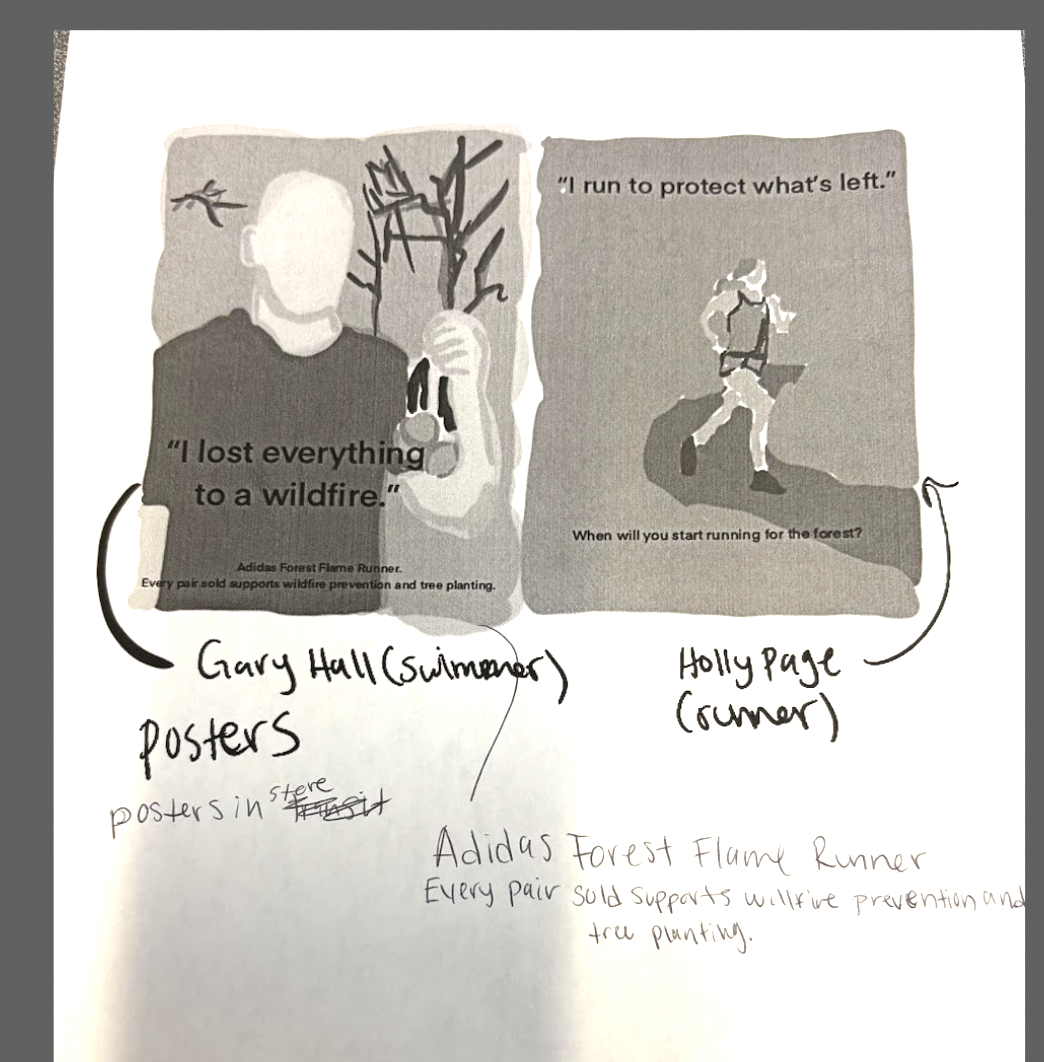 “I run to protect what’s left.”
“I lost everything
to a wildfire.”
When will you start running for the forest?
Adidas Forest Flame Runner.
Every pair sold supports wildfire prevention and tree planting.
Gary Hall (swimmer)
Holly Page
(runner)
posters
posters in store
Adidas Forest Flame Runner
Every pair sold supports willfire prevention and
tree planting.